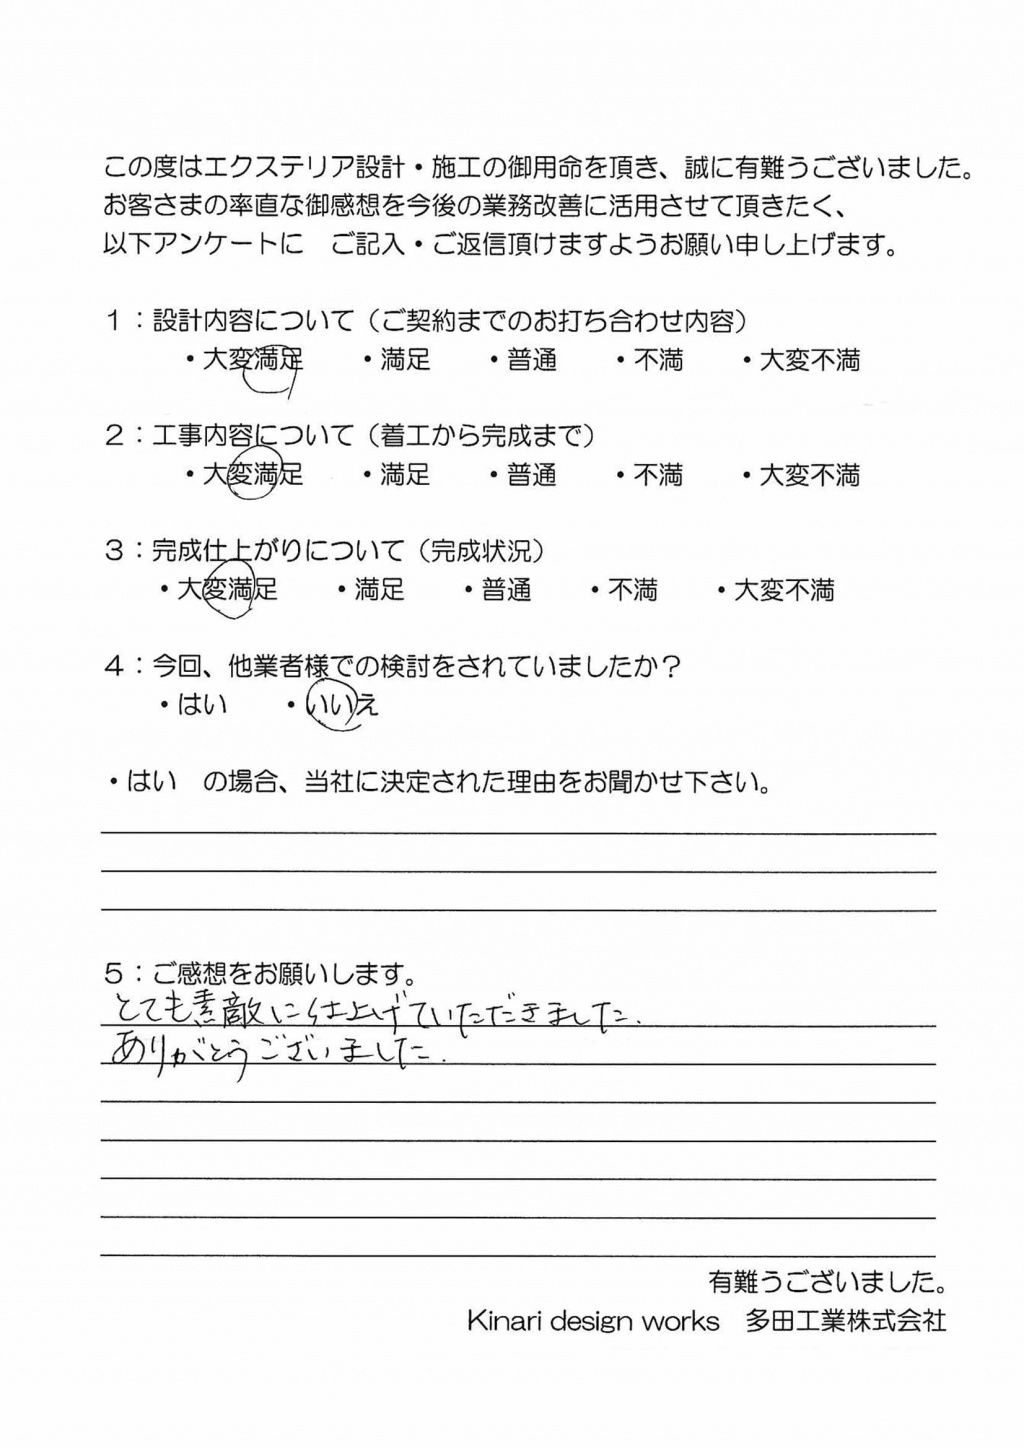 この度はエクステリア設計・施工の御用命を頂き、誠に有難うございました。
お客さまの率直な御感想を今後の業務改善に活用させて頂きたく、
以下アンケートに　ご記入・ご返信頂けますようお願い申し上げます。
1：設計内容について（ご契約までのお打ち合わせ内容）
・大変満足　・満足　・普通　・不満　・大変不満
2：工事内容について（着工から完成まで）
・大変満足　・満足　・普通　・不満　・大変不満
3：完成仕上がりについて（完成状況）
・大変満足　・満足　・普通　・不満　・大変不満
4：今回、他業者様での検討をされていましたか？
・はい　・いいえ
・はい　の場合、当社に決定された理由をお聞かせ下さい。
5：ご感想をお願いします。
とても素敵に仕上げていただきました.
ありがとうございました.
有難うございました。
Kinari design works　多田工業株式会社